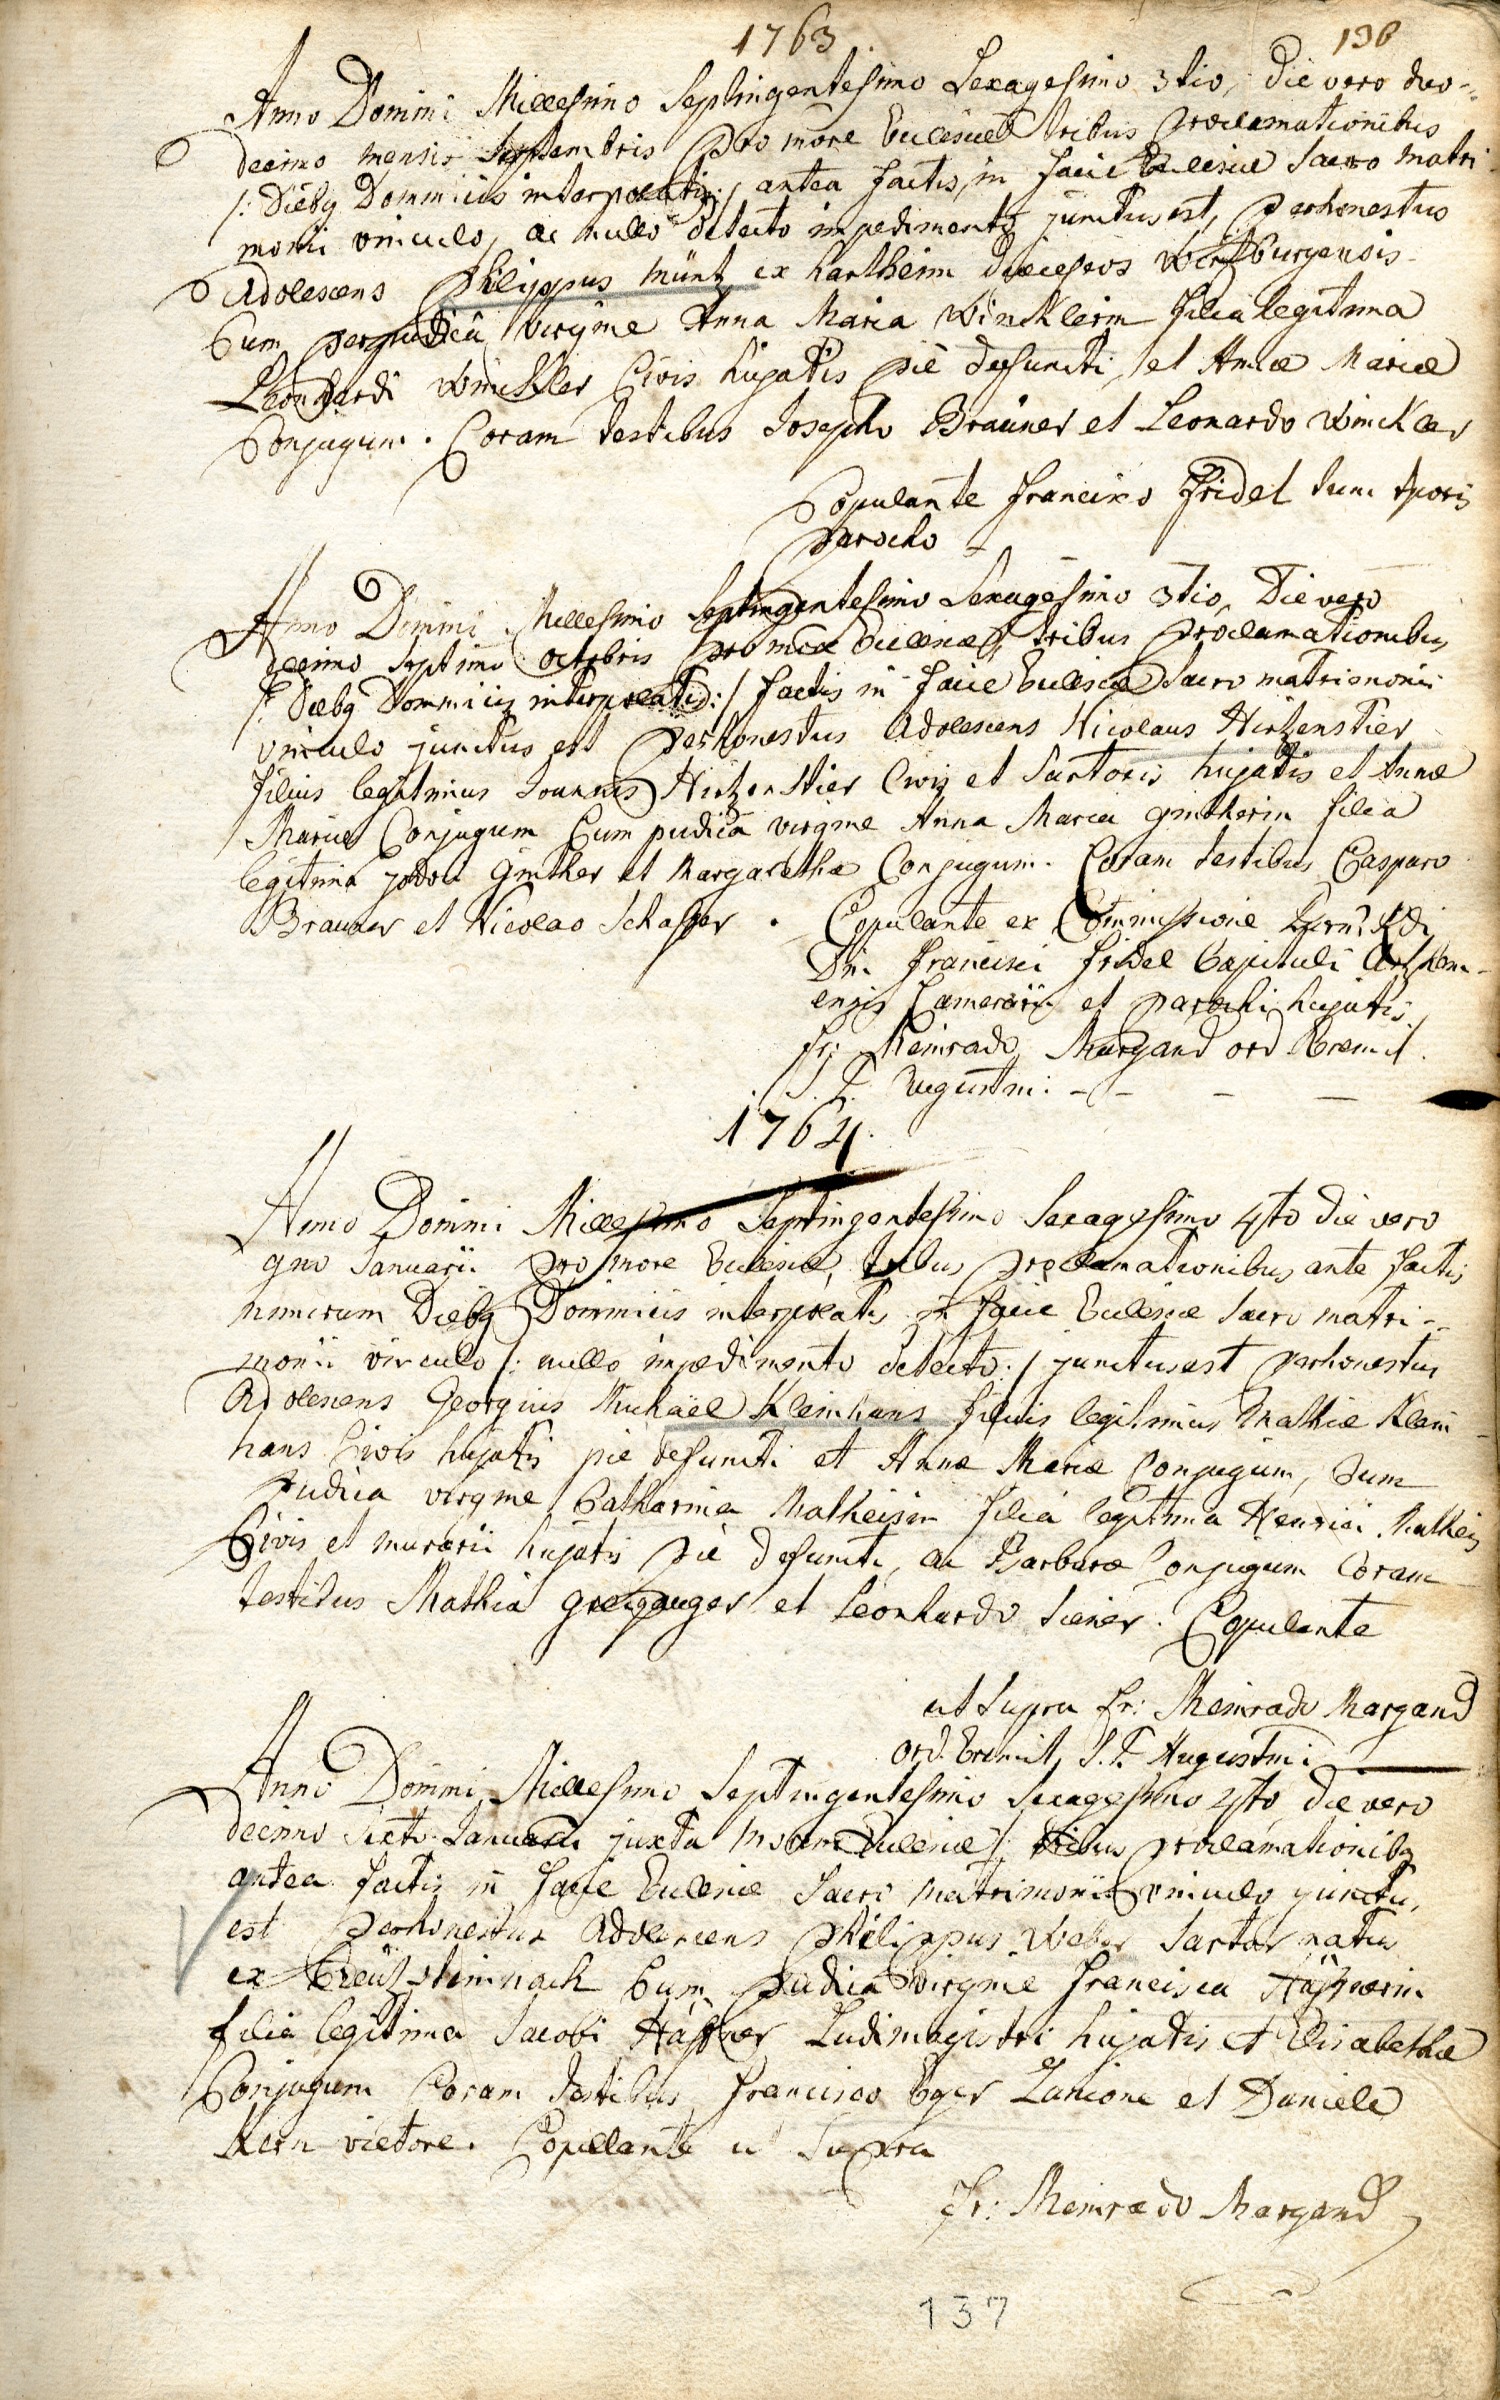 1763
136
Anno Domini Millesimo Septingentesimo Sexagesimo 3tio, die vero duo-
decimo mensis Septembris pro more Ecclesiae tribus proclamationibus
/: Diebq Dominicis interpolatis :/ antea factis, in facie Ecclesiae Sacro matri
monii vinculo, ac nullo detecto impedimento junctus est, perhonestus
Adolescens Philippus Müntz ex Hartheim diaeceseos Wirtzburgensis
Cum perpudica virgine Anna Maria Wincklerin filia legitima
Leonhardi Winckler Civis hujatis piè defuncti, et Annae Mariae
Conjugum. Coram testibus Josepho Braüner et Leonardo Winckler
Copulante Francisco Fridel tunc tporis
parocho
Anno Domini Millesimo Septingentesimo Sexagesimo 3tio, Die vero
decimo septimo octobris pro more Ecclesiae, tribus proclamationibus
/: Diebq Dominicis interpolatis :/ factis in facie Ecclesiae Sacro matrimonii
vinculo junctus est perhonestus Adolescens Nicolaus Hirtzenstier
filius legitimus Joannis Hirtzenstier Civis et Sartoris hujatis et Annae
Mariae Conjugum Cum pudica virgine Anna Maria gintherin filia
legitima jodoci ginther et Margarethae Conjugum. Coram testibus Casparo
Brauner et Nicolao Schaffer. Copulante ex Commissione
Dni Francisci Fridel Capituli
ensis Camerarii et parochi hujatis
fr: Meinrado Margand ord Eremit.
S. P. Augustini.
1764.
Anno Domini Millesimo Septingentesimo Sexagesimo 4to die vero
9no Januarii pro more Ecclesiae, tribus proclamationibus ante factis
nimirum Diebq Dominicis interpolatis in facie Ecclesiae Sacro matri-
monii vinculo /: nullo impedimento detecto :/ junctus est perhonestus
Adolescens Georgius Michaël Kleinhans filius legitimus Mathiae Klein
hans Civis hujatis pie defuncti et Annae Mariae Conjugum, Cum
pudica virgine Catharina Matheisin filia legitima Henrici Matheis
Civis et murarii hujatis piè defuncti, ac Barbarae Conjugum Coram
testibus Mathia et Leonhardo Siener. Copulante
ut supra fr: Meinrado Margand
ord. Eremit, S. P. Augustini
Anno Domini Millesimo Septingentesimo Sexagesimo 4to, die vero
decimo sexto Januarii juxta morem Ecclesiae, tribus proclamationibq
antea factis in facie Ecclesiae Sacri matrimonii vinculo junctus
est perhonestus Adolescens Philippus Weber Sartor natus
ex Creützsteinnach Cum pudica virgine Francisca Häffnerin
filia legitima Jacobi Häffner Ludimagistri hujatis et Elisabethae
Conjugum Coram testibus Francisco Eger Lanione et Daniele
Kern vietore. Copulante ut Supra
fr: Meinrado Margand
137